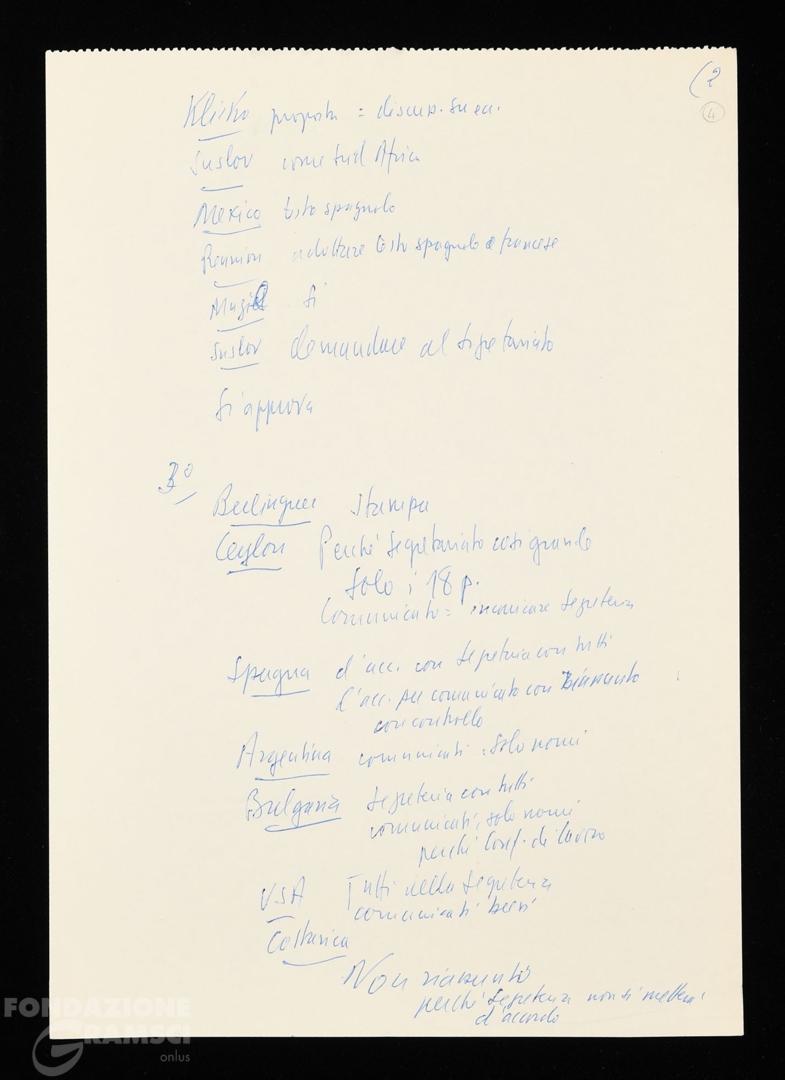 (2
4
proposta = discus. su ex.
Suslov come Sud Africa
Mexico testo spagnolo
Reunion adottare testo spagnolo e francese
Si
Suslov demandare al segretariato
Si approva
3°
Berlinguer Stampa
Ceylon Perché Segretariato così grande
Solo i 18 p.
Comunicato = incaricare Segreteria
Spagna d'acc. con Segreteria con tutti
d'acc. per comunicato con riassunto
con controllo
Argentina comunicati: solo nomi
Bulgaria Segreteria con tutti
comunicati: solo nomi
perché Conf. di lavoro
USA Tutti nella Segreteria
comunicati brevi
Costarica
Non riassunto
perché Segreteria non si metterà
d'accordo
FONDAZIONE
GRAMSCI
onlus